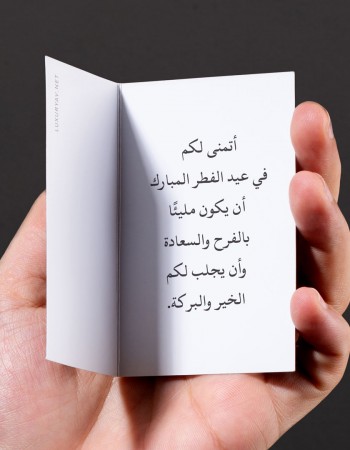 أتمنى لكم
في عيد الفطر المبارك
أن يكون مليئًا
بالفرح والسعادة
وأن يجلب لكم
الخير والبركة.